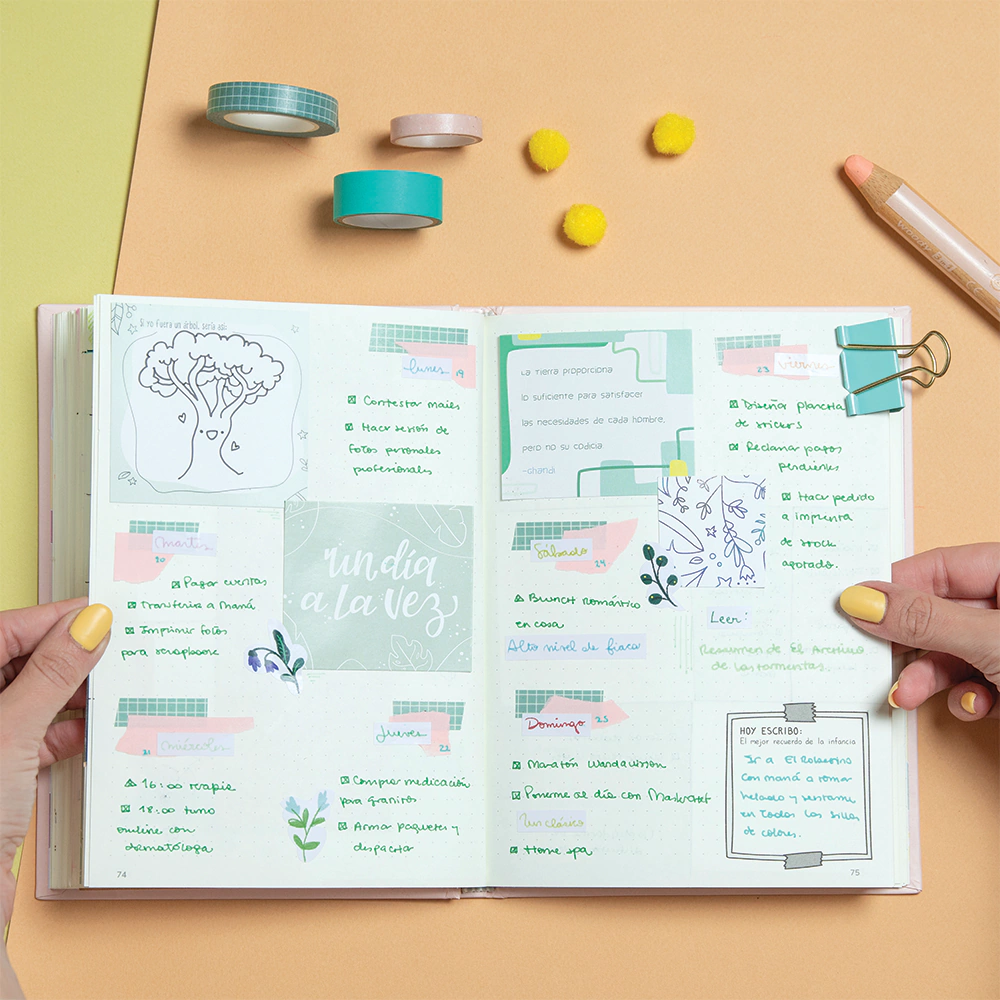 Si yo fuera un árbol, sería así:
lunes 19
Contestar mails
Hacer sesión de
fotos personales
profesionales
martes
20
Pagar cuentas
Transferir a Mamá
Imprimir fotos
para scrapbook
un día
a la vez
21 miércoles
16:00 terapia
18:00 turno
online con
dermatóloga
Jueves
22
Comprar medicación
para granitos
Armar paquetes y
despachar
74
La Tierra proporciona
lo suficiente para satisfacer
las necesidades de cada hombre,
pero no su codicia
-Ghandi
23 viernes
Diseñar plancha
de stickers
Reclamar pagos
pendientes
Hacer pedido
a imprenta
de stock
agotado.
Sábado
24
Brunch romántico
en casa
Alto nivel de fiaca
Leer:
Resumen de El Archivo
de las tormentas.
Domingo 25
Maratón Wandavision
Ponerme al día con Masterchef
Un clásico
Home spa
HOY ESCRIBO:
El mejor recuerdo de la infancia
Ir a El
con mamá a tomar
helado y sentarme
en todas las sillas
de colores.
75